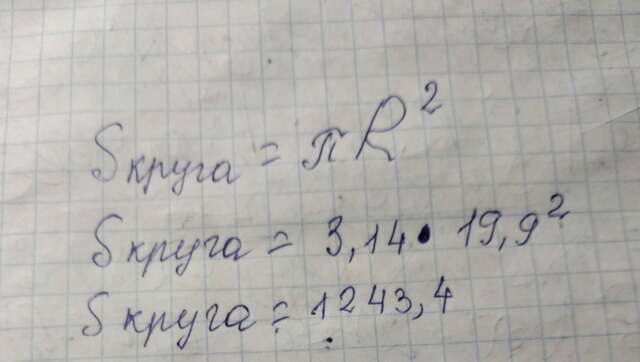 S круга = πR²
S круга = 3,14 • 19,9²
S круга = 1243,4